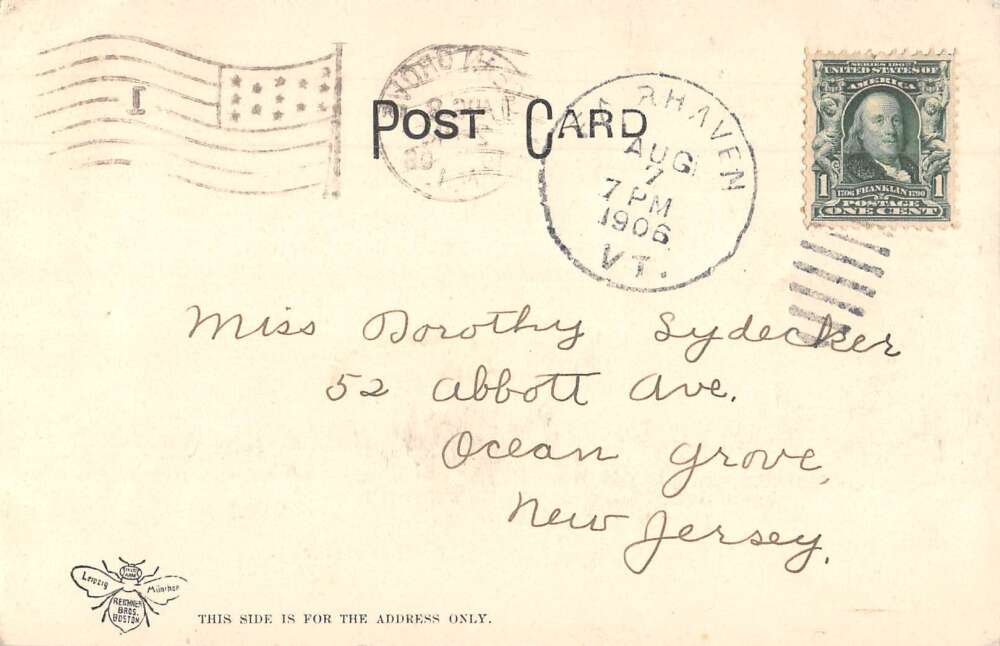 POST CARD
FAIRHAVEN
AUG
7
7 PM
1906
VT.
1
SERIES 1902
UNITED STATES OF
AMERICA
1 1
1706 FRANKLIN 1790
POSTAGE
ONE CENT
Miss Dorothy Lydecker
52 Abbott Ave.
Ocean Grove,
New Jersey.
Leipzig München
REICHNER
BROS.
BOSTON
THIS SIDE IS FOR THE ADDRESS ONLY.